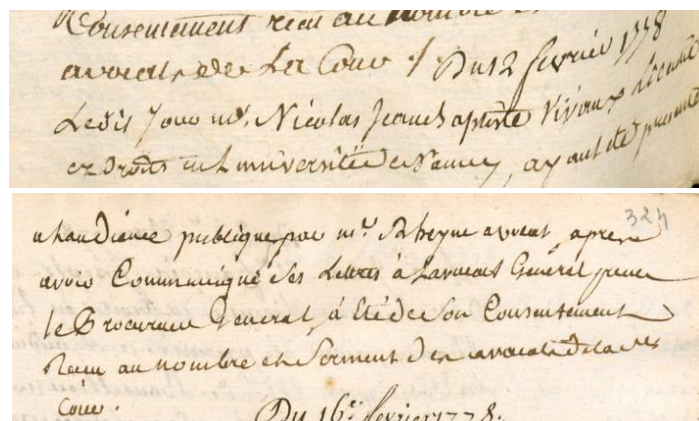 Consentement recu au nombre et
avocats de La Cour ./. Du 12 fevrier 1778
Ledit Jour mr. Nicolas Jean Baptiste Vivaux Licentié
ez Droits en L'université de Nancy, ayant été presenté
a l'audience publique par mr. avocat, apres 324
avoir Communiqué ses Lettres à L'avocat General pour
le Procureur General, à été de son Consentement
Recu au nombre et Serment des avocats de la
Cour.
Du 16e. fevrier 1778.